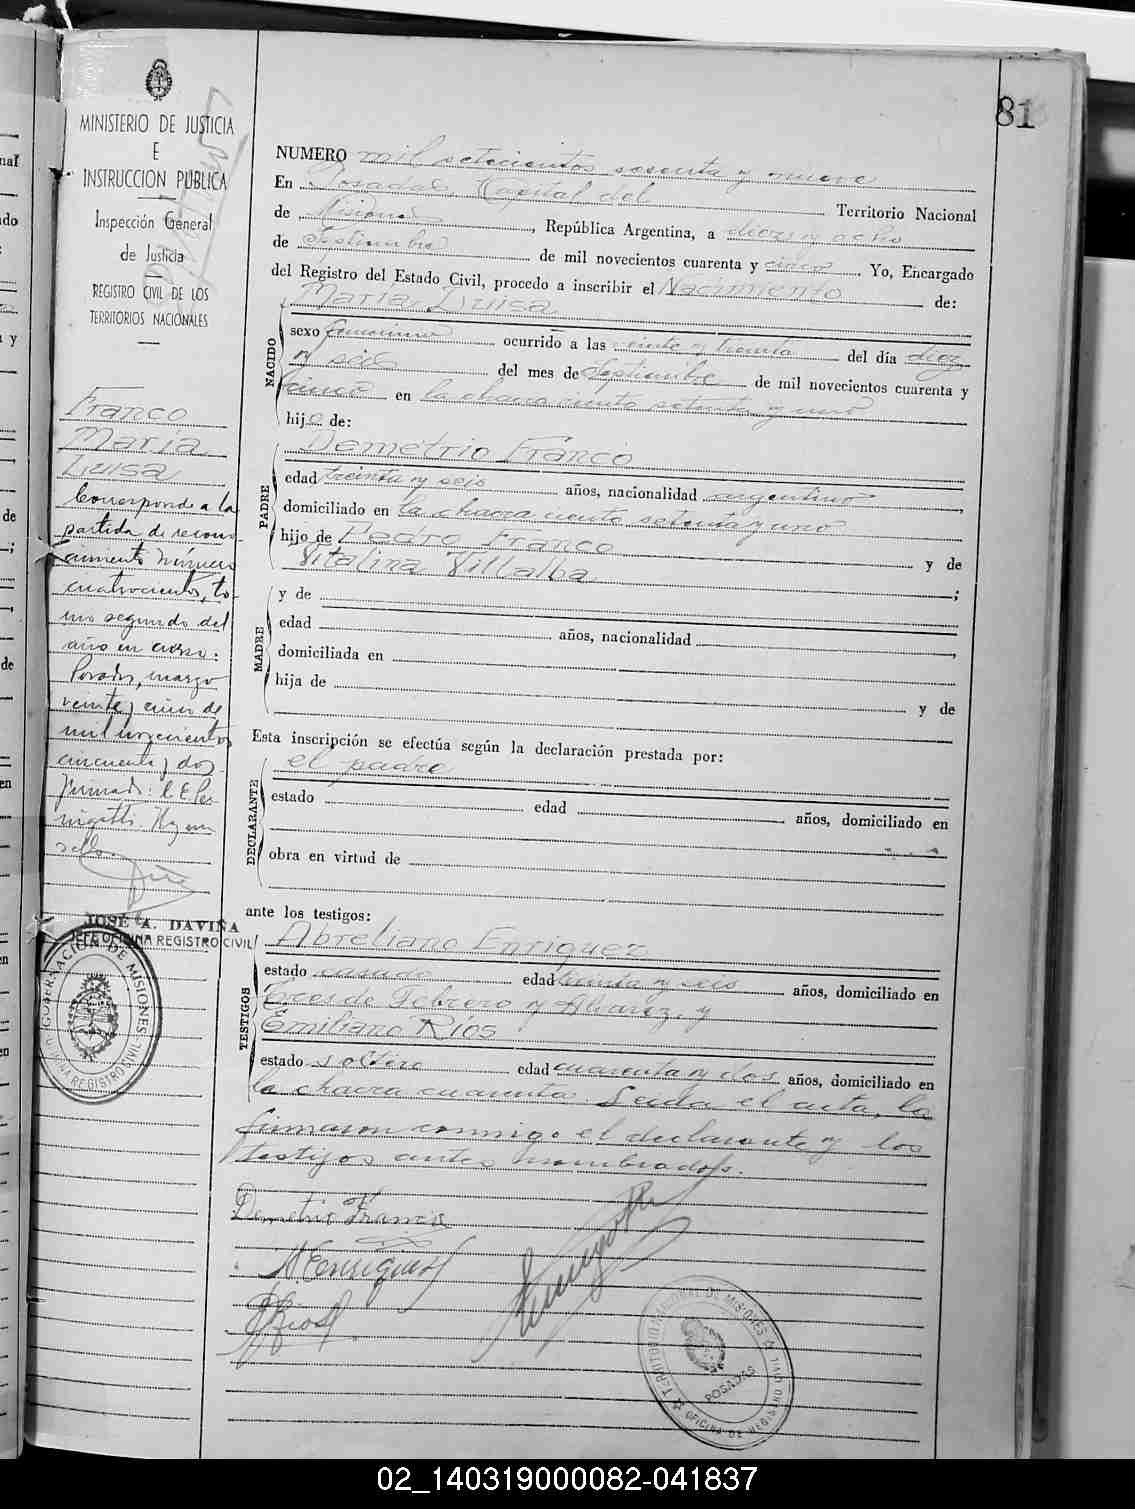 81
MINISTERIO DE JUSTICIA
E
INSTRUCCION PUBLICA
Inspección General
de Justicia
REGISTRO CIVIL DE LOS
TERRITORIOS NACIONALES
Franco
María
Luisa
Corresponde a la
partida de recono-
cimiento número
cuatrocientos, to-
mo segundo del
año en curso.
Posadas, marzo
veinte y cinco de
mil novecientos
cincuenta y dos
Firmado:
Hay un
sello.
JOSÉ A. DAVIÑA
JEFE OFICINA REGISTRO CIVIL
GOBERNACION DE MISIONES
OFICINA REGISTRO CIVIL
NUMERO mil setecientos sesenta y nueve
En Posadas, Capital del Territorio Nacional
de Misiones, República Argentina, a diez y ocho
de Septiembre de mil novecientos cuarenta y cinco. Yo, Encargado
del Registro del Estado Civil, procedo a inscribir el Nacimiento de:
María Luisa
NACIDO
sexo femenino ocurrido a las veinte y treinta del día diez
y seis del mes de Septiembre de mil novecientos cuarenta y
cinco en la chacra ciento setenta y uno
hija de:
PADRE
Demetrio Franco
edad treinta y seis años, nacionalidad argentino,
domiciliado en la chacra ciento setenta y uno
hijo de Pedro Franco y de
Vitalina Villalba;
MADRE
y de
edad años, nacionalidad,
domiciliada en
hija de
y de
Esta inscripción se efectúa según la declaración prestada por:
el padre
DECLARANTE
estado edad años, domiciliado en
obra en virtud de
ante los testigos:
TESTIGOS
Abreliano Enriquez
estado casado edad treinta y seis años, domiciliado en
Tres de Febrero y Alvarez, y
Emiliano Ríos
estado soltero edad cuarenta y dos años, domiciliado en
la chacra cuarenta. Leída el acta, la
firmaron conmigo el declarante y los
testigos antes nombrados.
Demetrio Franco
A Enriquez
E Rios
TERRITORIO NACIONAL DE MISIONES
POSADAS
OFICINA DE REGISTRO CIVIL
02_140319000082-041837